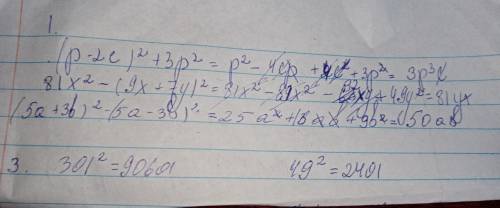 1.
(p-2c)² + 3p² = p² - 4cp + 4c² + 3p² = 3p³c
81x² - (9x + 7y)² = 81x² - 81x² - + 49y² = 81yx
(5a+3b)² - (5a-3b)² = 25a² + 9b² = 50ab
3. 301² = 90601 49² = 2401